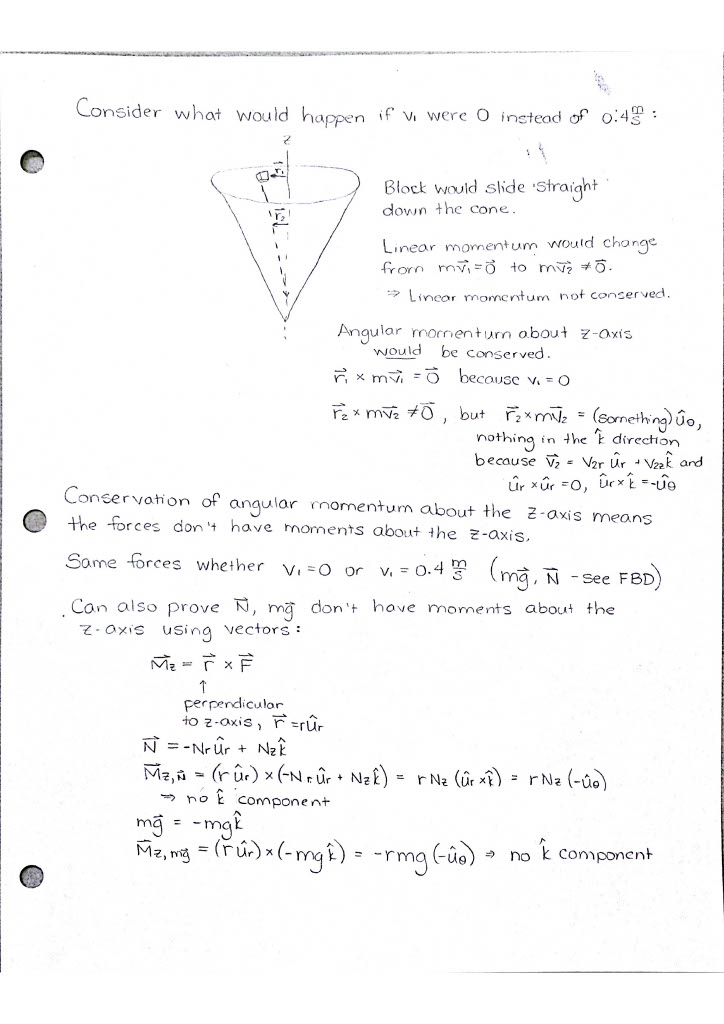 Consider what would happen if v₁ were 0 instead of 0.4 m/s :
z
r⃗₁
r⃗₂
Block would slide straight
down the cone.
Linear momentum would change
from mv⃗₁ = 0⃗ to mv⃗₂ ≠ 0⃗.
⇒ Linear momentum not conserved.
Angular momentum about z-axis
would be conserved.
r⃗₁ × mv⃗₁ = 0⃗ because v₁ = 0
r⃗₂ × mv⃗₂ ≠ 0⃗ , but r⃗₂ × mv⃗₂ = (something) û_θ,
nothing in the k̂ direction
because v⃗₂ = v₂r ûr + v₂z k̂ and
ûr × ûr = 0, ûr × k̂ = -û_θ
Conservation of angular momentum about the z-axis means
the forces don't have moments about the z-axis.
Same forces whether v₁ = 0 or v₁ = 0.4 m/s (mg⃗, N⃗ - see FBD)
Can also prove N⃗, mg⃗ don't have moments about the
z-axis using vectors :
M⃗z = r⃗ × F⃗
↑
perpendicular
to z-axis, r⃗ = rûr
N⃗ = -Nr ûr + Nz k̂
M⃗z,N⃗ = (r ûr) × (-Nr ûr + Nz k̂) = r Nz (ûr × k̂) = r Nz (-û_θ)
⇒ no k̂ component
mg⃗ = -mg k̂
M⃗z,mg⃗ = (r ûr) × (-mg k̂) = -rmg (-û_θ) ⇒ no k̂ component